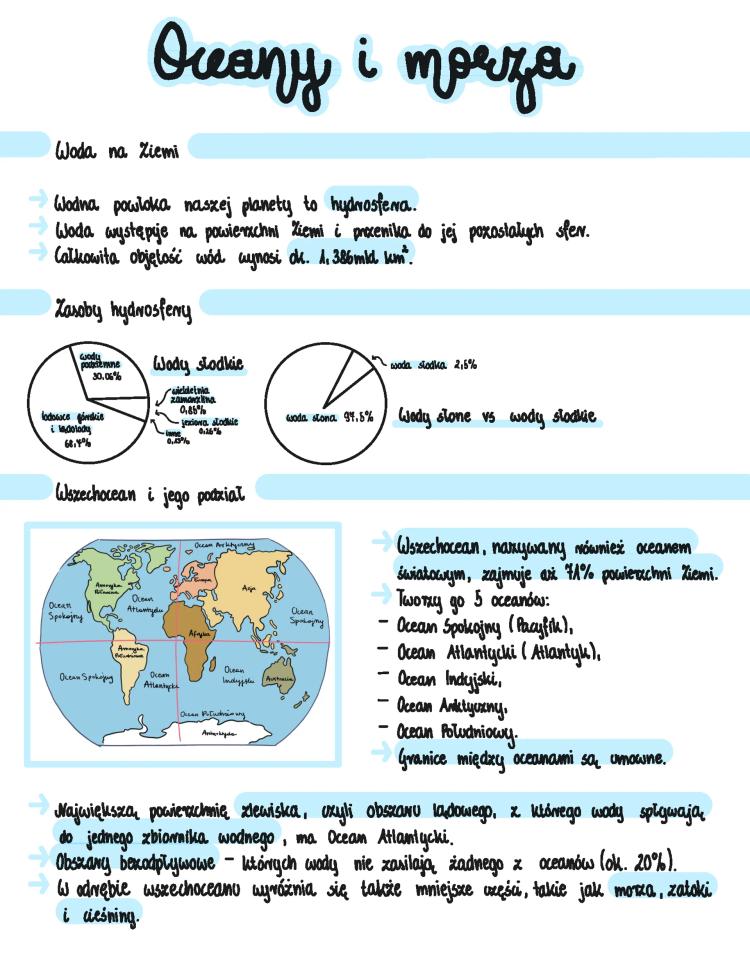 Oceany i morza
Woda na Ziemi
→ Wodna powłoka naszej planety to hydrosfera.
→ Woda występuje na powierzchni Ziemi i przenika do jej pozostałych sfer.
→ Całkowita objętość wód wynosi ok. 1,386mld km³.
Zasoby hydrosfery
wody
podziemne
30,06%
lodowce górskie
i lądolody
68,7%
Wody słodkie
wieloletnia
zmarzlina
0,85%
jeziora słodkie
0,26%
inne
0,13%
woda słodka 2,5%
woda słona 97,5%
Wody słone vs wody słodkie
Wszechocean i jego podział
Ocean Arktyczny
Ameryka
Północna
Europa
Azja
Ocean
Spokojny
Ocean
Atlantycki
Ocean
Spokojny
Afryka
Ameryka
Południowa
Ocean Spokojny
Ocean
Atlantycki
Ocean
Indyjski
Australia
Ocean Południowy
Antarktyda
→ Wszechocean, nazywany również oceanem
światowym, zajmuje aż 71% powierzchni Ziemi.
→ Tworzy go 5 oceanów:
- Ocean Spokojny (Pacyfik),
- Ocean Atlantycki (Atlantyk),
- Ocean Indyjski,
- Ocean Arktyczny,
- Ocean Południowy.
→ Granice między oceanami są umowne.
→ Największą powierzchnię zlewiska, czyli obszaru lądowego, z którego wody spływają
do jednego zbiornika wodnego, ma Ocean Atlantycki.
→ Obszary bezodpływowe – których wody nie zasilają żadnego z oceanów (ok. 20%).
→ W odrębie wszechoceanu wyróżnia się także mniejsze części, takie jak morza, zatoki
i cieśniny.